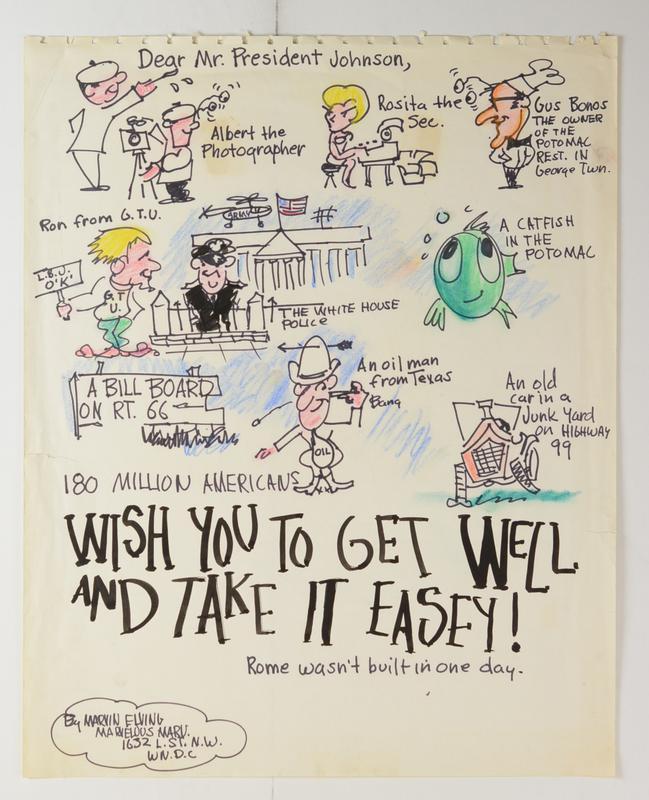 Dear Mr. President Johnson,
Albert the
Photographer
Rosita the
Sec.
Gus Bonos
THE OWNER
OF THE
POTOMAC
REST. IN
George Twn.
Ron from G.T.U.
L.B.J.
O'K'
G.T.
U.
ARMY
THE WHITE HOUSE
POLICE
A CATFISH
IN THE
POTOMAC
A BILL BOARD
ON RT. 66
An oil man
from Texas
Bang
OIL
An old
car in a
Junk Yard
on HIGHWAY
99
180 MILLION AMERICANS
WISH YOU TO GET WELL
AND TAKE IT EASEY!
Rome wasn't built in one day.
By MARVIN ELVING
MARVELOUS MARV.
1632 L. ST. N.W.
WN. D.C